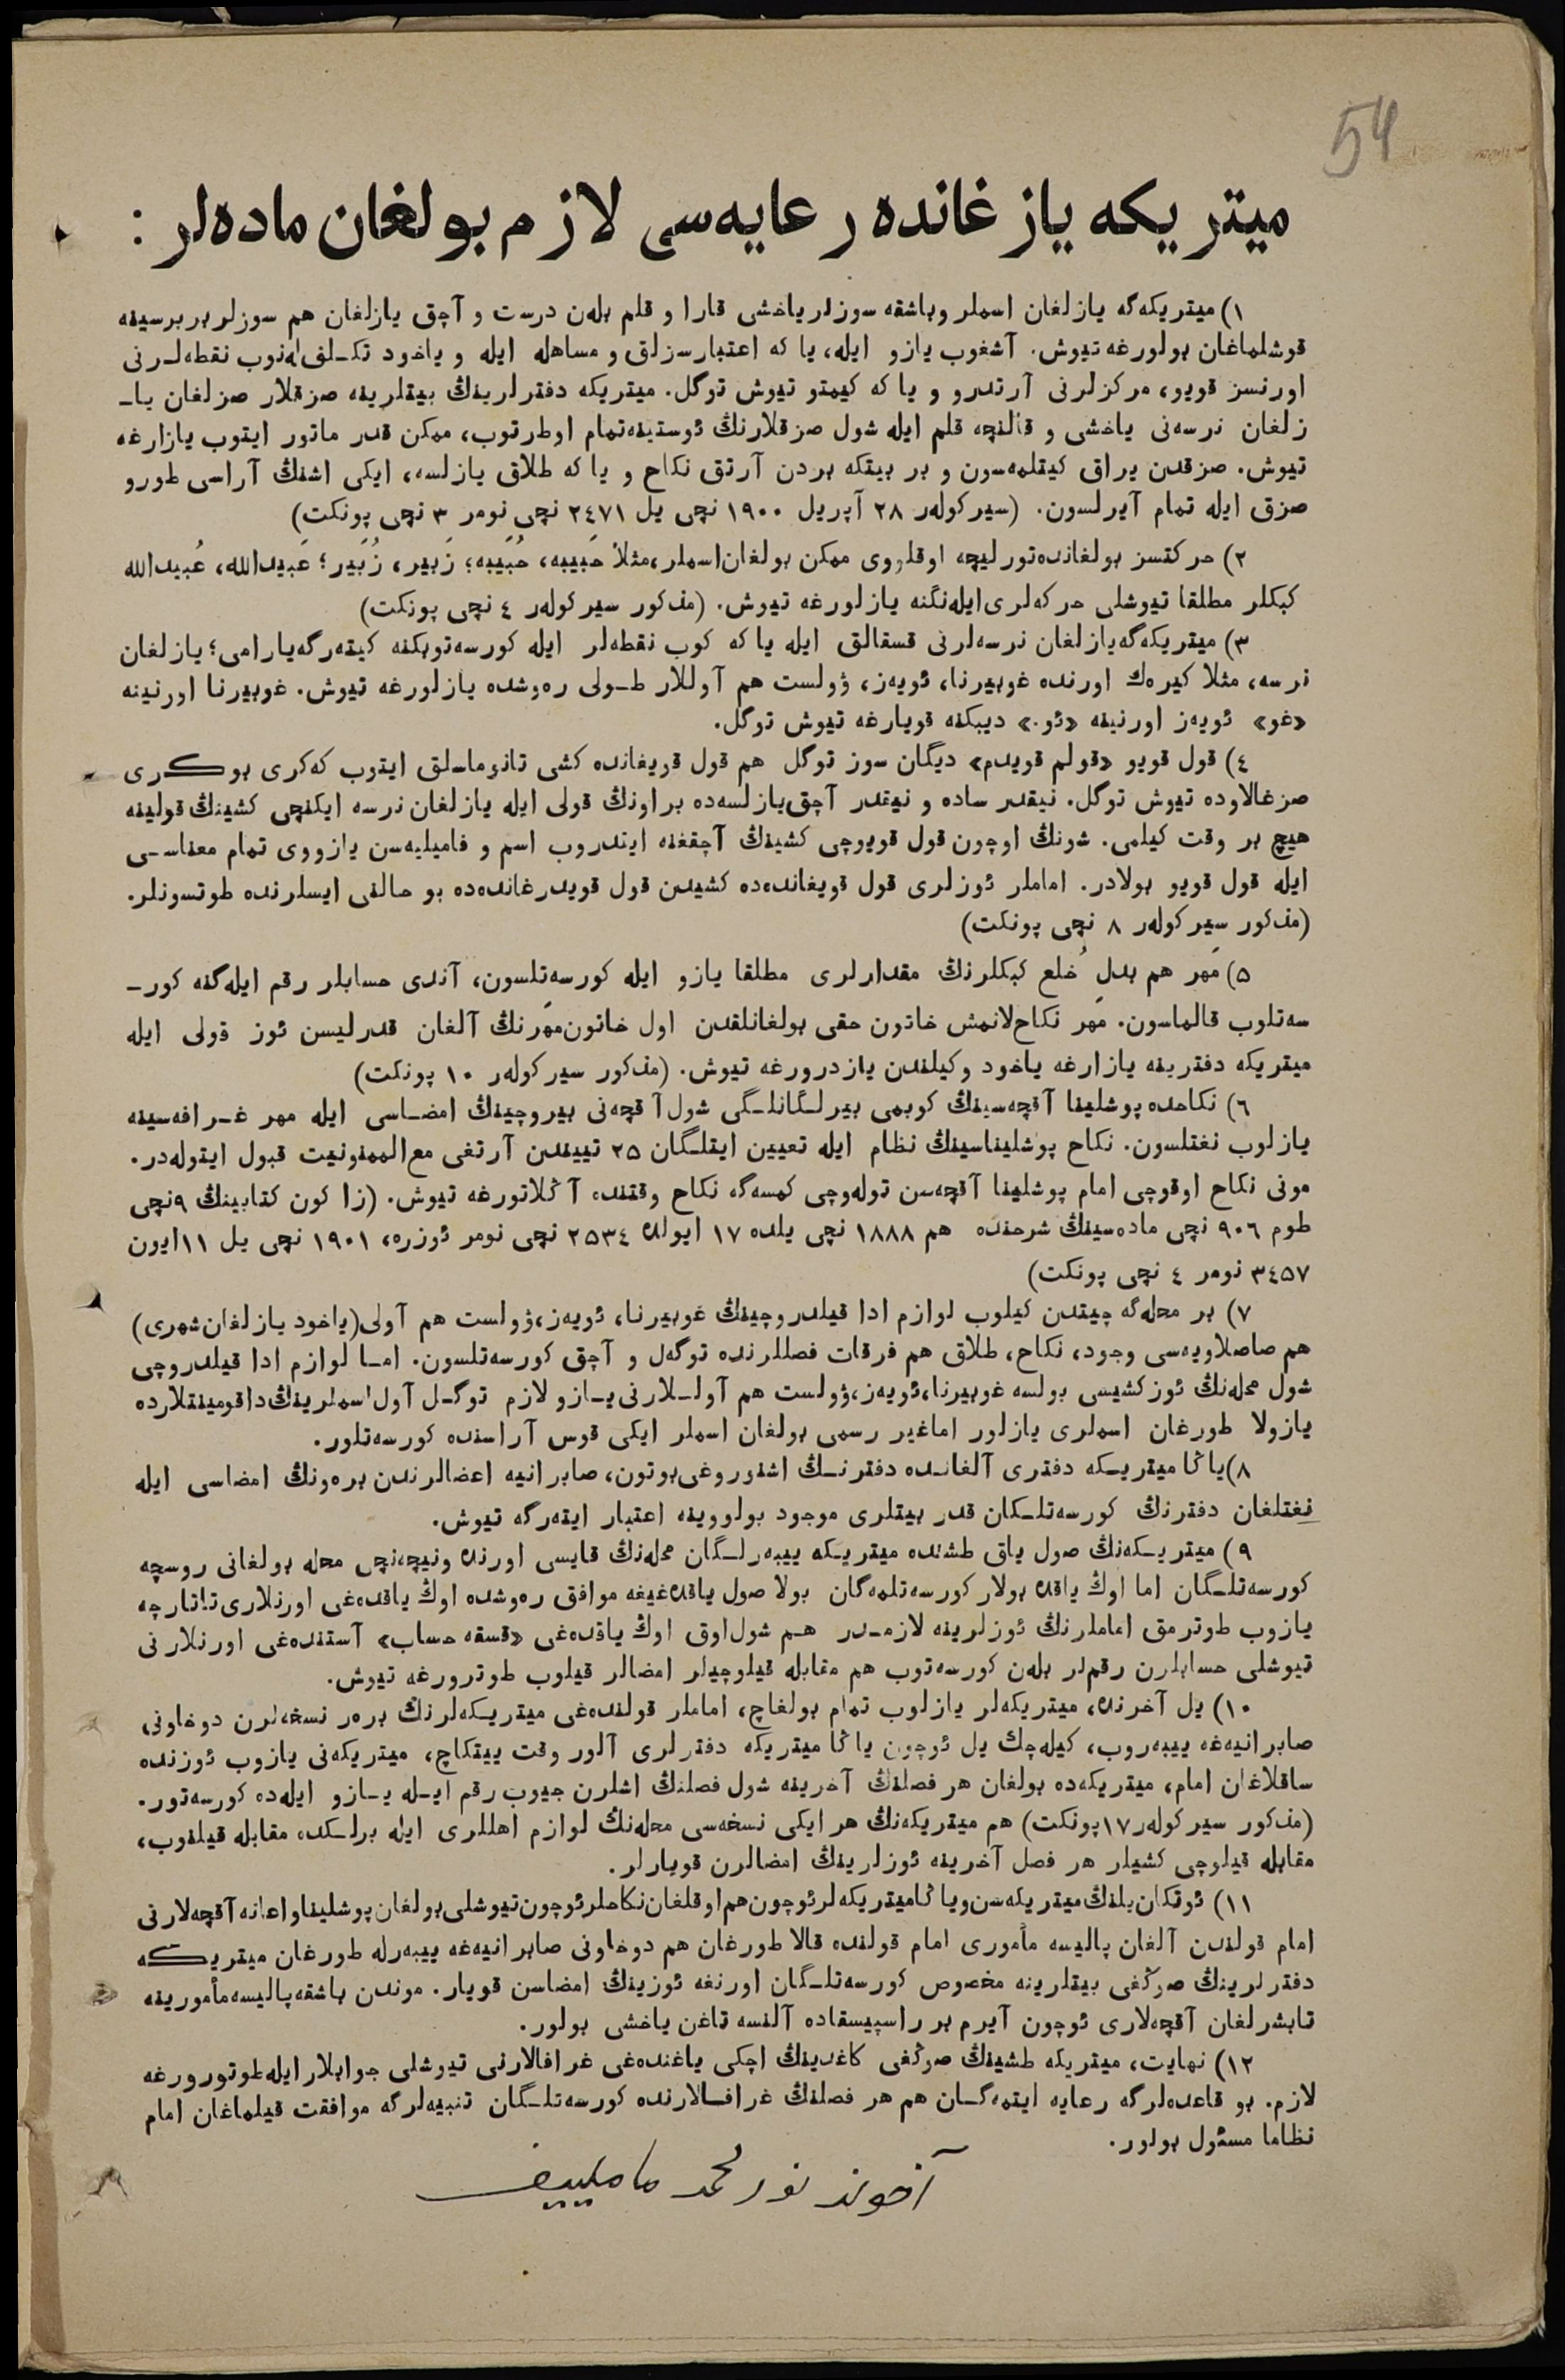 54
ميتريكه يازغانده رعايه‌سى لازم بولغان ماده‌لر :
١) ميتريكه‌گه يازلغان اسملر وباشقه سوزلر ياخشى قارا و قلم بله‌ن درست و آچق يازلغان هم سوزلر بربرسينه
قوشلماغان بولورغه تيوش. آشغوب يازو ايله، يا كه اعتبارسزلق و مساهله ايله و ياخود تكـلف له‌نوب نقطه‌لـرنى
اورنسز قويو، مركزلرنى آرتدرو و يا كه كيمتو تيوش توگل. ميتريكه دفترلرينڭ بيتلرينه صزقلار صزلغان ياـ
زلغان نرسه‌نى ياخشى و قالنچه قلم ايله شول صزقلارنڭ ئوستينه‌تمام اوطرتوب، ممكن قدر ماتور ايتوب يازارغه
تيوش. صزقدن يراق كيتلمه‌سون و بر بيتكه بردن آرتق نكاح و يا كه طلاق يازلسه، ايكى اشنڭ آراسى طورو
صزق ايله تمام آيرلسون. (سيركوله‌ر ٢٨ آپريل ١٩٠٠ نچى يل ٢٤٧١ نچى نومر ٣ نچى پونكت)
٢) حركتسز بولغانده‌تورليچه اوقلووى ممكن بولغان‌اسملر،مثلاً حَبيبه، حُبَيبه؛ زَبير، زُبَير؛ عَبيدالله، عُبيدالله
كبكلر مطلقا تيوشلى حركه‌لرى‌ايله‌نگنه يازلورغه تيوش. (مذكور سيركوله‌ر ٤ نچى پونكت)
٣) ميتريكه‌گه‌يازلغان نرسه‌لرنى قسقالق ايله يا كه كوب نقطه‌لر ايله كورسه‌توبكنه كيته‌رگه‌يارامى؛ يازلغان
نرسه، مثلا كيره‌ك اورنده غوبيرنا، ئويه‌ز، ۋولست هم آوللار طـولى ره‌وشده يازلورغه تيوش. غوبيرنا اورنينه
«غو» ئويه‌ز اورنينه «ئو.» ديبكنه قويارغه تيوش توگل.
٤) قول قويو «قولم قويدم» ديگان سوز توگل هم قول قويغانده كشى تانوماـلق ايتوب كه‌كرى بوكرى
صزغالاوده تيوش توگل. نيقدر ساده و نيقدر آچق‌يازلسه‌ده براونڭ قولى ايله يازلغان نرسه ايكنچى كشينڭ قولينه
هيچ بر وقت كيلمى. شونڭ اوچون قول قويوچى كشينڭ آچقغنه ايتدروب اسم و فاميليه‌سن يازووى تمام معناسـى
ايله قول قويو بولادر. اماملر ئوزلرى قول قويغانده‌ده كشيدن قول قويدرغانده‌ده بو حالنى ايسلرنده طوتسونلر.
(مذكور سيركوله‌ر ٨ نچى پونكت)
٥) مَهر هم بدلِ خُلع كبكلرنڭ مقدارلرى مطلقا يازو ايله كورسه‌تلسون، آندى حسابلر رقم ايله‌گنه كورـ
سه‌تلوب قالماسون. مَهر نكاح‌لانمش خاتون حقى بولغانلقدن اول خاتون‌مهَرنڭ آلغان قدرليسن ئوز قولى ايله
ميتريكه دفترينه يازارغه ياخود وكيلندن يازدرورغه تيوش. (مذكور سيركوله‌ر ١٠ پونكت)
٦) نكاحده پوشلينا آقچه‌سينڭ كوبمى بيرلـگانلـگى شول آقچه‌نى بيروچينڭ امضـاسى ايله مهر غـرافه‌سينه
يازلوب نغتلسون. نكاح پوشليناسينڭ نظام ايله تعيين ايتلـگان ٢٥ تييندن آرتغى مع‌الممنونيت قبول ايتوله‌در.
مونى نكاح اوقوچى امام پوشلينا آقچه‌سن توله‌وچى كمسه‌گه نكاح وقتنده آڭلاتورغه تيوش. (زاكون كتابينڭ ٩نچى
طوم ٩٠٦ نچى ماده‌سينڭ شرحنده هم ١٨٨٨ نچى يلده ١٧ ايولده ٢٥٣٤ نچى نومر ئوزره، ١٩٠١ نچى يل ١١ايون
٣٤٥٧ نومر ٤ نچى پونكت)
٧) بر محله‌گه چيتدن كيلوب لوازم ادا قيلدروچينڭ غوبيرنا، ئويه‌ز،ۋولست هم آولى(ياخود يازلغان‌شهرى)
هم صاصلاويه‌سى وجود، نكاح، طلاق هم فرقات فصللرنده توگه‌ل و آچق كورسه‌تلسون. امـا لوازم ادا قيلدروچى
شول محله‌نڭ ئوزكشيسى بولسه غوبيرنا،ئويه‌ز،ۋولست هم آولـلارنى‌يـازو لازم توگـل آول‌اسملرينڭ‌داقومينتلارده
يازولا طورغان اسملرى يازلور اماغير رسمى بولغان اسملر ايكى قوس آراسنده كورسه‌تلور.
٨)ياڭا ميتريـكه دفترى آلغانـده دفترنـڭ اشنوروغى‌بوتون، صابرانيه اعضالرندن بره‌ونڭ امضاسى ايله
نغتلغان دفترنڭ كورسه‌تلـكان قدر بيتلرى موجود بولووينه اعتبار ايته‌رگه تيوش.
٩) ميتريـكه‌نڭ صول ياق طشنده ميتريـكه ييبه‌رلـگان محله‌نڭ قايسى اورنده ونيچه‌نچى محله بولغانى روسچه
كورسه‌تلـگان اما اوڭ ياقده بولار كورسه‌تلمه‌گان بولا صول ياقده‌غيغه موافق ره‌وشده اوڭ ياقده‌غى اورنلارى‌تاتارچه
يازوب طوترمق اماملرنڭ ئوزلرينه لازمـدر هـم شول‌اوق اوڭ ياقده‌غى «قسقه حساب» آستنده‌غى اورنلارنى
تيوشلى حسابلرن رقملر بله‌ن كورسه‌توب هم مقابله قيلوچيلر امضالر قيلوب طوترورغه تيوش.
١٠) يل آخرنده، ميتريكه‌لر يازلوب تمام بولغاچ، اماملر قولنده‌غى ميتريـكه‌لرنڭ بره‌ر نسخه‌لرن دوخاونى
صابرانيه‌غه ييبه‌روب، كيله‌چك يل ئوچون ياڭا ميتريكه دفترلرى آلور وقت ييتكاچ، ميتريكه‌نى يازوب ئوزنده
ساقلاغان امام، ميتريكه‌ده بولغان هر فصلنڭ آخرينه شول فصلنڭ اشلرن جيوب رقم ايـله يـازو ايله‌ده كورسه‌تور.
(مذكور سيركوله‌ر١٧پونكت) هم ميتريكه‌نڭ هر ايكى نسخه‌سى محله‌نڭ لوازم اهللرى ايله برلـكده مقابله قيلنوب،
مقابله قيلوچى كشيلر هر فصل آخرينه ئوزلرينڭ امضالرن قويارلر.
١١) ئوتكان‌يلنڭ‌ميتريكه‌سن‌وياڭاميتريكه‌لرئوچون‌هم‌اوقلغان‌نكاحلرئوچون‌تيوشلى‌بولغان‌پوشليناواعانه‌آقچه‌لارنى
امام قولندن آلغان پاليسه مأمورى امام قولنده قالا طورغان هم دوخاونى صابرانيه‌غه ييبه‌رله طورغان ميتريكه
دفترلرينڭ صوڭغى بيتلرينه مخصوص كورسه‌تلـگان اورنغه ئوزينڭ امضاسن قويار. موندن باشقه‌پاليسه‌مأمورينه
تابشرلغان آقچه‌لارى ئوچون آيرم بر راسپيسقاده آلنسه تاغن ياخشى بولور.
١٢) نهايت، ميتريكه طشينڭ صوڭغى كاغدينڭ اچكى ياغنده‌غى غرافالارنى تيوشلى جوابلار ايله‌طوتورورغه
لازم. بو قاعده‌لرگه رعايه ايتمه‌گـان هم هر فصلنڭ غرافـالارنده كورسه‌تلـگان تنبيه‌لرگه موافقت قيلماغان امام
نظاما مسئول بولور.
آخوند نورمحمد ماملييف